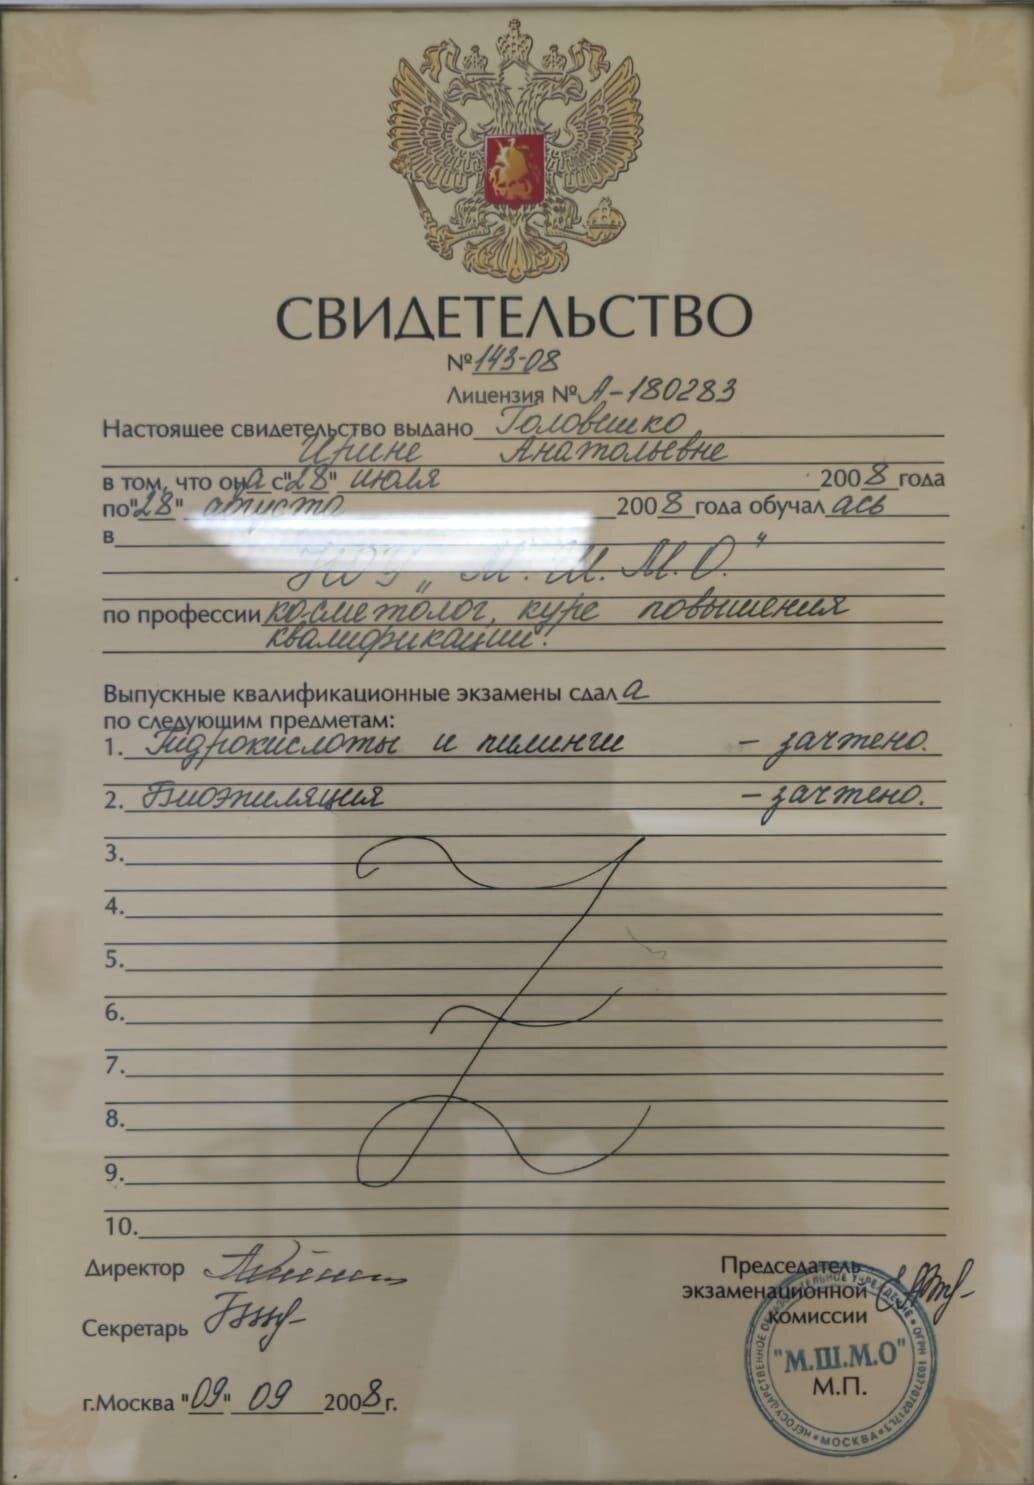 СВИДЕТЕЛЬСТВО
№ 143-08
Лицензия № А-180283
Настоящее свидетельство выдано Головешко
Ирине Анатольевне
в том, что она с "28" июля 2008 года
по "28" августа 2008 года обучалась
в
НОУ "М.Ш.М.О."
по профессии косметолог, курс повышения
квалификации.
Выпускные квалификационные экзамены сдала
по следующим предметам:
1. Гидрокислоты и пилинги - зачтено.
2. Биоэпиляция - зачтено.
3.
4.
5.
6.
7.
8.
9.
10.
Директор
Председатель
экзаменационной
комиссии
Секретарь
НЕГОСУДАРСТВЕННОЕ ОБРАЗОВАТЕЛЬНОЕ УЧРЕЖДЕНИЕ
МОСКВА
"М.Ш.М.О"
М.П.
г.Москва "09" 09 2008 г.